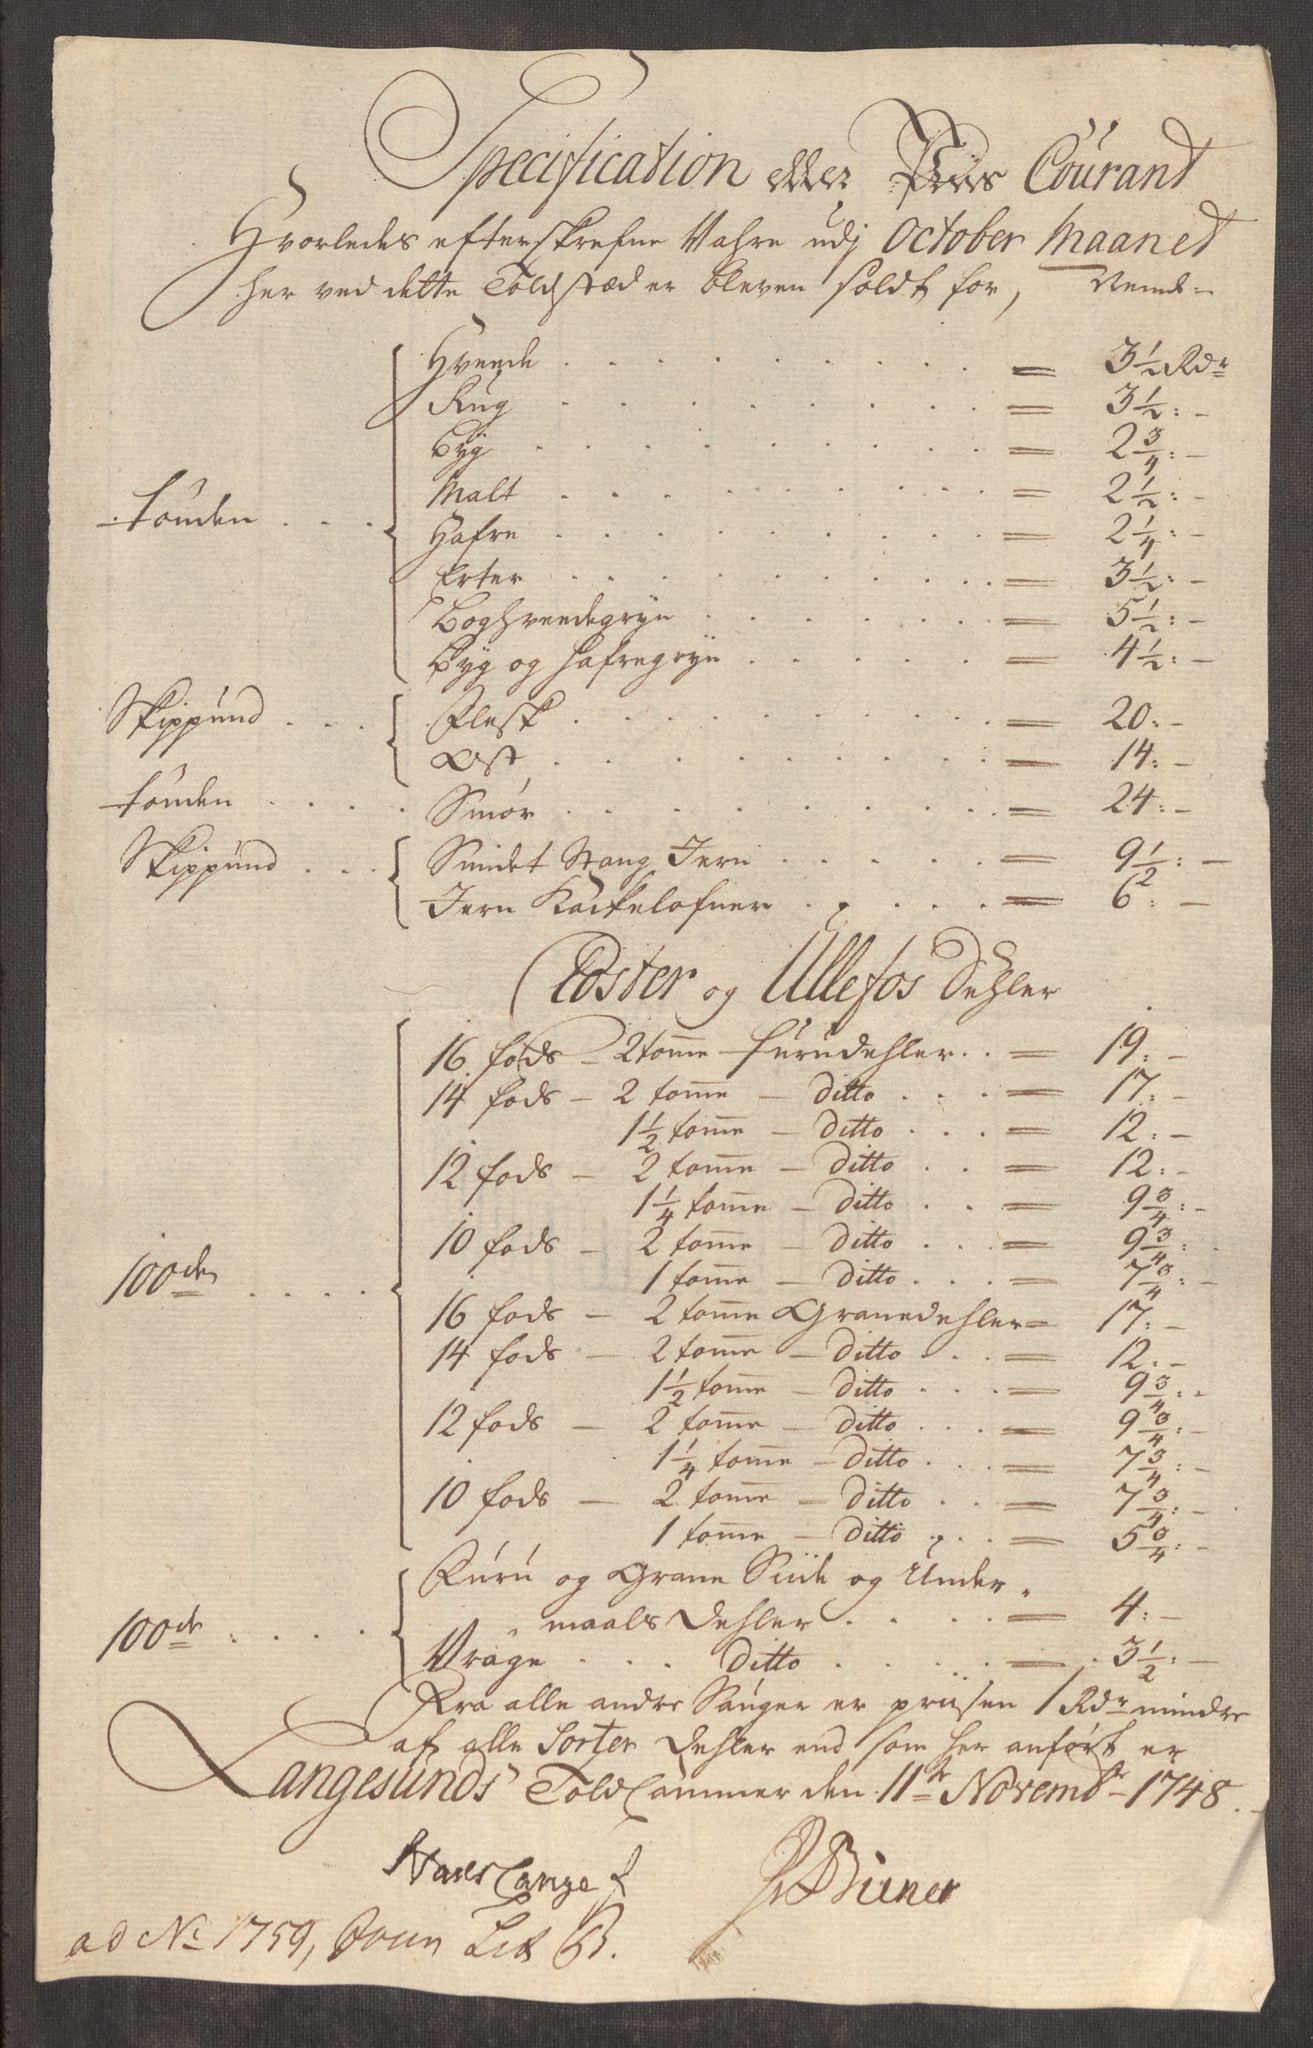 Specification eller Priis Courant
Hvorledes efterskrefne Vahre udj October Maanet
her ved dette Toldstæd er bleven soldt for,
Tönden . . . Hveede . . . = 3 1/2 Rdr
Rúg . . . = 3 1/2 : -
Byg . . . = 2 3/4 : -
Malt . . . = 2 1/2 : -
Hafre . . . = 2 1/4 : -
Erter . . . = 3 1/2 : -
Boghveedegryn . . . = 5 1/2 : -
Byg og Hafregryn . . . = 4 1/2 : -
Skippúnd . . . Flesk . . . = 20 : -
Ost . . . = 14 : -
Tönden . . . Smör . . . = 24 : -
Skippúnd . . . Smidet Stang Jern . . . = 9 1/2 : -
Jern Kackelofner . . . = 6 : -
Coster og Ullefos Dehler
100de . . . 16 fods - 2 tomme Fúrúdehler . . = 19 : -
14 fods - 2 tomme - Ditto . . . = 17 : -
1 1/2 tomme - Ditto . . . = 12 : -
12 fods - 2 tomme - Ditto . . = 12 : -
1 1/4 tomme - Ditto . . = 9 3/4 : -
10 fods - 2 tomme - Ditto . . . = 9 3/4 : -
1 tomme - Ditto . . . = 7 3/4 : -
16 fods - 2 tomme Granedehler = 17 : -
14 fods - 2 tomme - Ditto . . . = 12 : -
1 1/2 tomme - Ditto . . . = 9 3/4 : -
12 fods - 2 tomme - Ditto . . . = 9 3/4 : -
1 1/4 tomme - Ditto . . . = 7 3/4 : -
10 fods - 2 tomme - Ditto . . = 7 3/4 : -
1 tomme - Ditto . . . = 5 3/4 : -
100de . . . Fúrú og Grane Siide og Under
maals Dehler . . . = 4 : -
Vrage . . . Ditto . . . = 3 1/2 : -
Fra alle andre Sauger er priisen 1 Rdr mindre
af alle Sorter Dehler end som her anført er
Langesunds Told Cammer den 11te Novembr 1748.
Hans Lange
ad No 1759, Lit B.